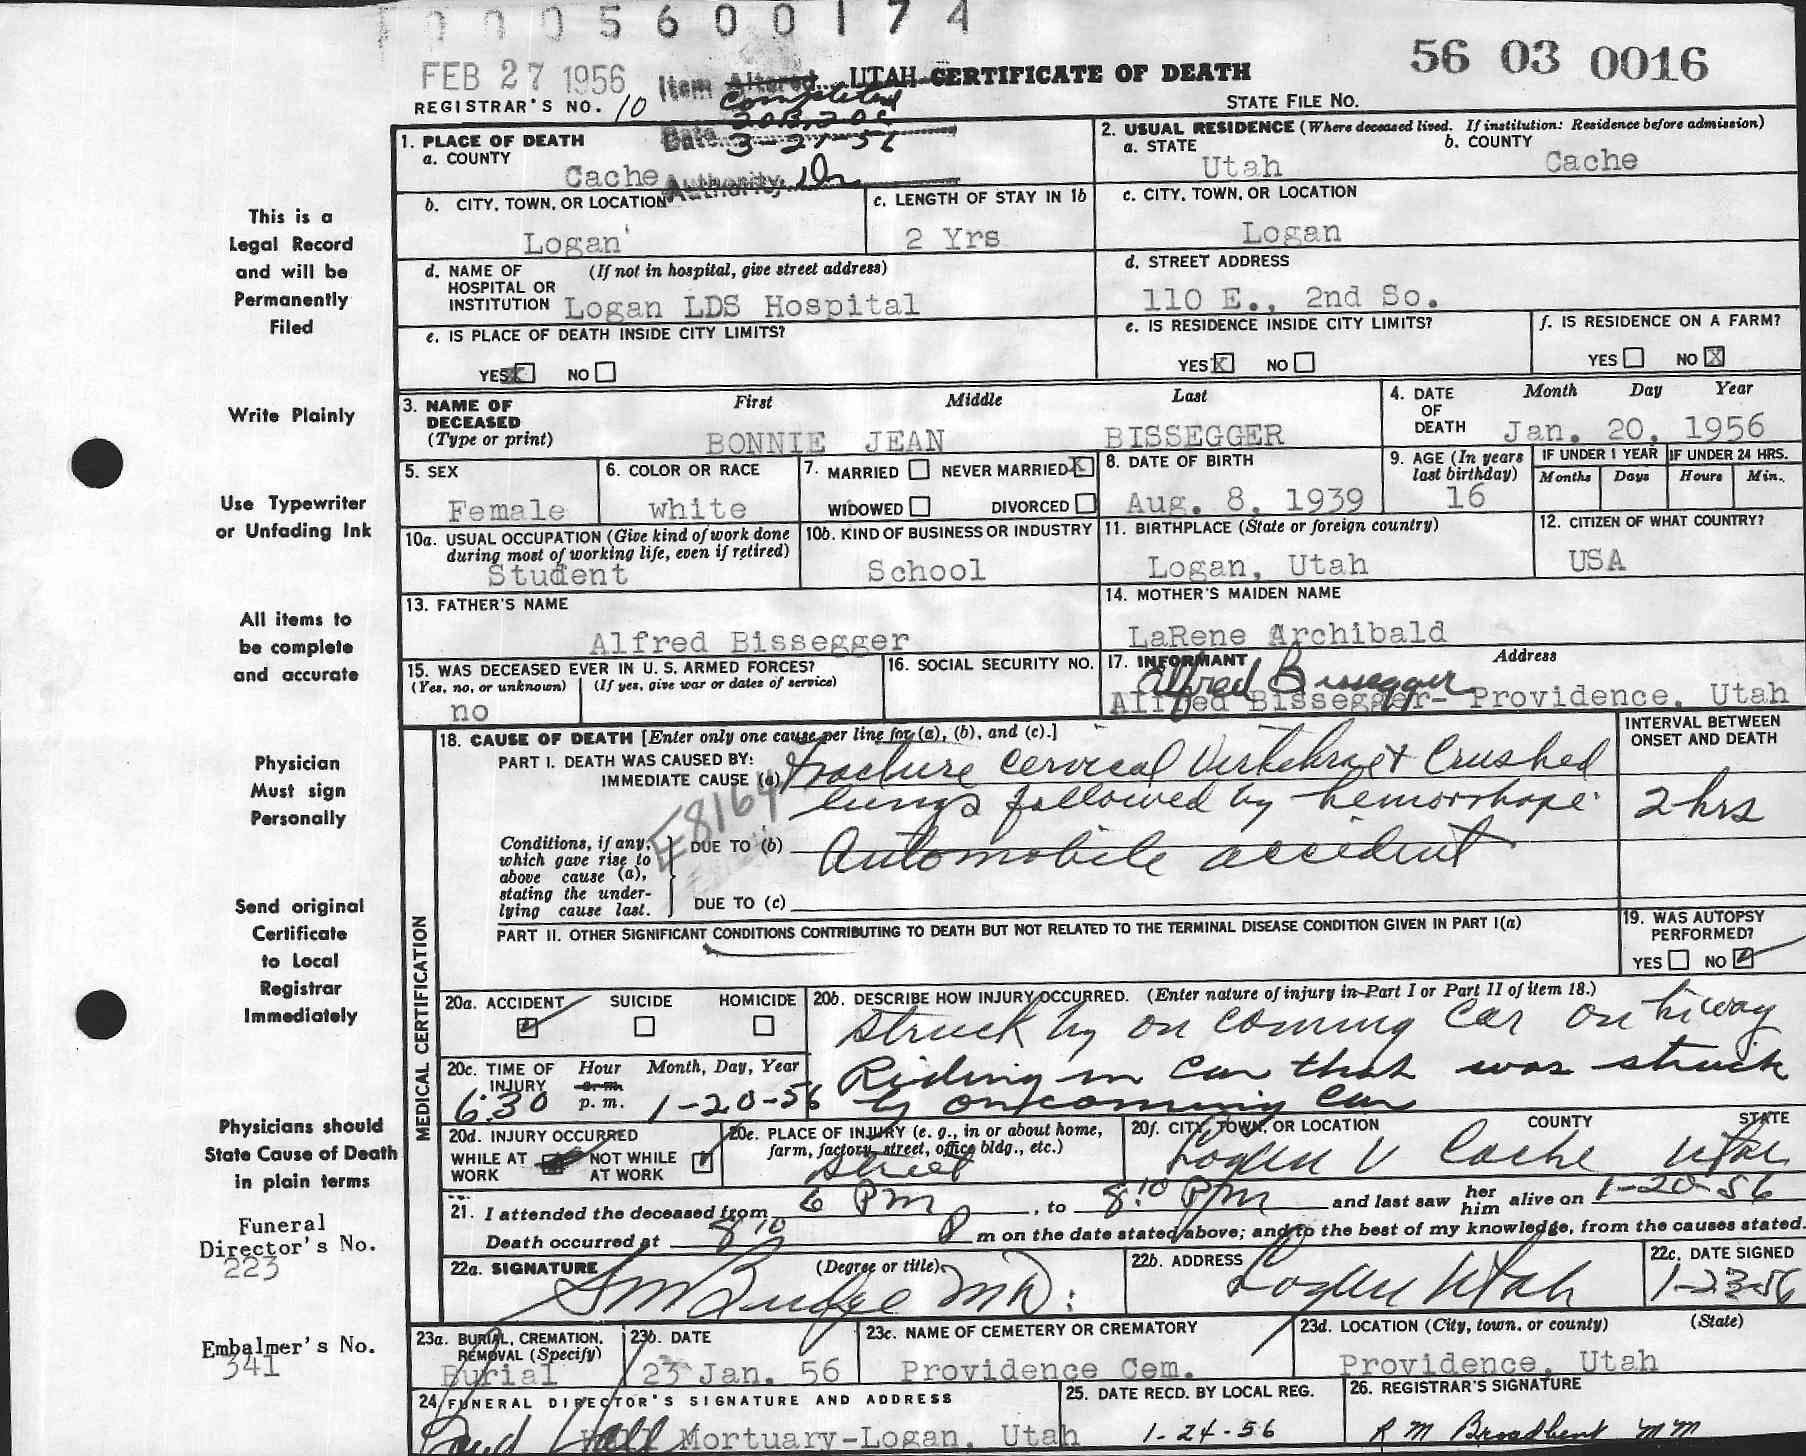 0 0 0 5 6 0 0 1 7 4
FEB 27 1956
Item Altered UTAH CERTIFICATE OF DEATH
56 03 0016
Completed
REGISTRAR'S NO. 10
STATE FILE NO.
20B, 20C
Date 3-27-56
Authority
1. PLACE OF DEATH
a. COUNTY
Cache
2. USUAL RESIDENCE (Where deceased lived. If institution: Residence before admission)
a. STATE
Utah
b. COUNTY
Cache
b. CITY, TOWN, OR LOCATION
Logan
c. LENGTH OF STAY IN 1b
2 Yrs
c. CITY, TOWN, OR LOCATION
Logan
d. NAME OF HOSPITAL OR INSTITUTION (If not in hospital, give street address)
Logan LDS Hospital
d. STREET ADDRESS
110 E., 2nd So.
e. IS PLACE OF DEATH INSIDE CITY LIMITS?
YES X NO
e. IS RESIDENCE INSIDE CITY LIMITS?
YES X NO
f. IS RESIDENCE ON A FARM?
YES NO X
3. NAME OF DECEASED (Type or print)
First Middle Last
BONNIE JEAN BISSEGGER
4. DATE OF DEATH
Month Day Year
Jan. 20, 1956
5. SEX
Female
6. COLOR OR RACE
white
7. MARRIED NEVER MARRIED X
WIDOWED DIVORCED
8. DATE OF BIRTH
Aug. 8, 1939
9. AGE (In years last birthday)
16
IF UNDER 1 YEAR
Months Days
IF UNDER 24 HRS.
Hours Min.
10a. USUAL OCCUPATION (Give kind of work done during most of working life, even if retired)
Student
10b. KIND OF BUSINESS OR INDUSTRY
School
11. BIRTHPLACE (State or foreign country)
Logan, Utah
12. CITIZEN OF WHAT COUNTRY?
USA
13. FATHER'S NAME
Alfred Bissegger
14. MOTHER'S MAIDEN NAME
LaRene Archibald
15. WAS DECEASED EVER IN U.S. ARMED FORCES?
(Yes, no, or unknown) (If yes, give war or dates of service)
no
16. SOCIAL SECURITY NO.
17. INFORMANT Address
Alfred Bissegger
Alfred Bissegger- Providence, Utah
MEDICAL CERTIFICATION
18. CAUSE OF DEATH [Enter only one cause per line for (a), (b), and (c).]
INTERVAL BETWEEN ONSET AND DEATH
PART I. DEATH WAS CAUSED BY:
IMMEDIATE CAUSE (a) Fracture Cervical Vertebrae & Crushed
lungs followed by hemorrhage
2 hrs
E8164
Conditions, if any, which gave rise to above cause (a), stating the underlying cause last.
DUE TO (b) Automobile accident
DUE TO (c)
PART II. OTHER SIGNIFICANT CONDITIONS CONTRIBUTING TO DEATH BUT NOT RELATED TO THE TERMINAL DISEASE CONDITION GIVEN IN PART I(a)
19. WAS AUTOPSY PERFORMED?
YES NO
20a. ACCIDENT SUICIDE HOMICIDE
20b. DESCRIBE HOW INJURY OCCURRED. (Enter nature of injury in Part I or Part II of item 18.)
struck by on coming car on hiway
Riding in car that was struck
by oncoming car
20c. TIME OF INJURY
Hour Month, Day, Year
a. m.
p. m.
6:30 1-20-56
20d. INJURY OCCURRED
WHILE AT WORK NOT WHILE AT WORK
20e. PLACE OF INJURY (e. g., in or about home, farm, factory, street, office bldg., etc.)
street
20f. CITY, TOWN, OR LOCATION COUNTY STATE
Logan Cache Utah
21. I attended the deceased from 6 PM, to 8:10 PM and last saw her him alive on 1-20-56
Death occurred at 8:10 P m on the date stated above; and to the best of my knowledge, from the causes stated.
22a. SIGNATURE (Degree or title)
SM Budge MD:
22b. ADDRESS
Logan Utah
22c. DATE SIGNED
1-23-56
23a. BURIAL, CREMATION, REMOVAL (Specify)
Burial
23b. DATE
23 Jan. 56
23c. NAME OF CEMETERY OR CREMATORY
Providence Cem.
23d. LOCATION (City, town, or county) (State)
Providence, Utah
24. FUNERAL DIRECTOR'S SIGNATURE AND ADDRESS
Hall Mortuary-Logan, Utah
25. DATE RECD. BY LOCAL REG.
1-24-56
26. REGISTRAR'S SIGNATURE
R M Broadbent
This is a
Legal Record
and will be
Permanently
Filed
Write Plainly
Use Typewriter
or Unfading Ink
All items to
be complete
and accurate
Physician
Must sign
Personally
Send original
Certificate
to Local
Registrar
Immediately
Physicians should
State Cause of Death
in plain terms
Funeral
Director's No.
223
Embalmer's No.
341